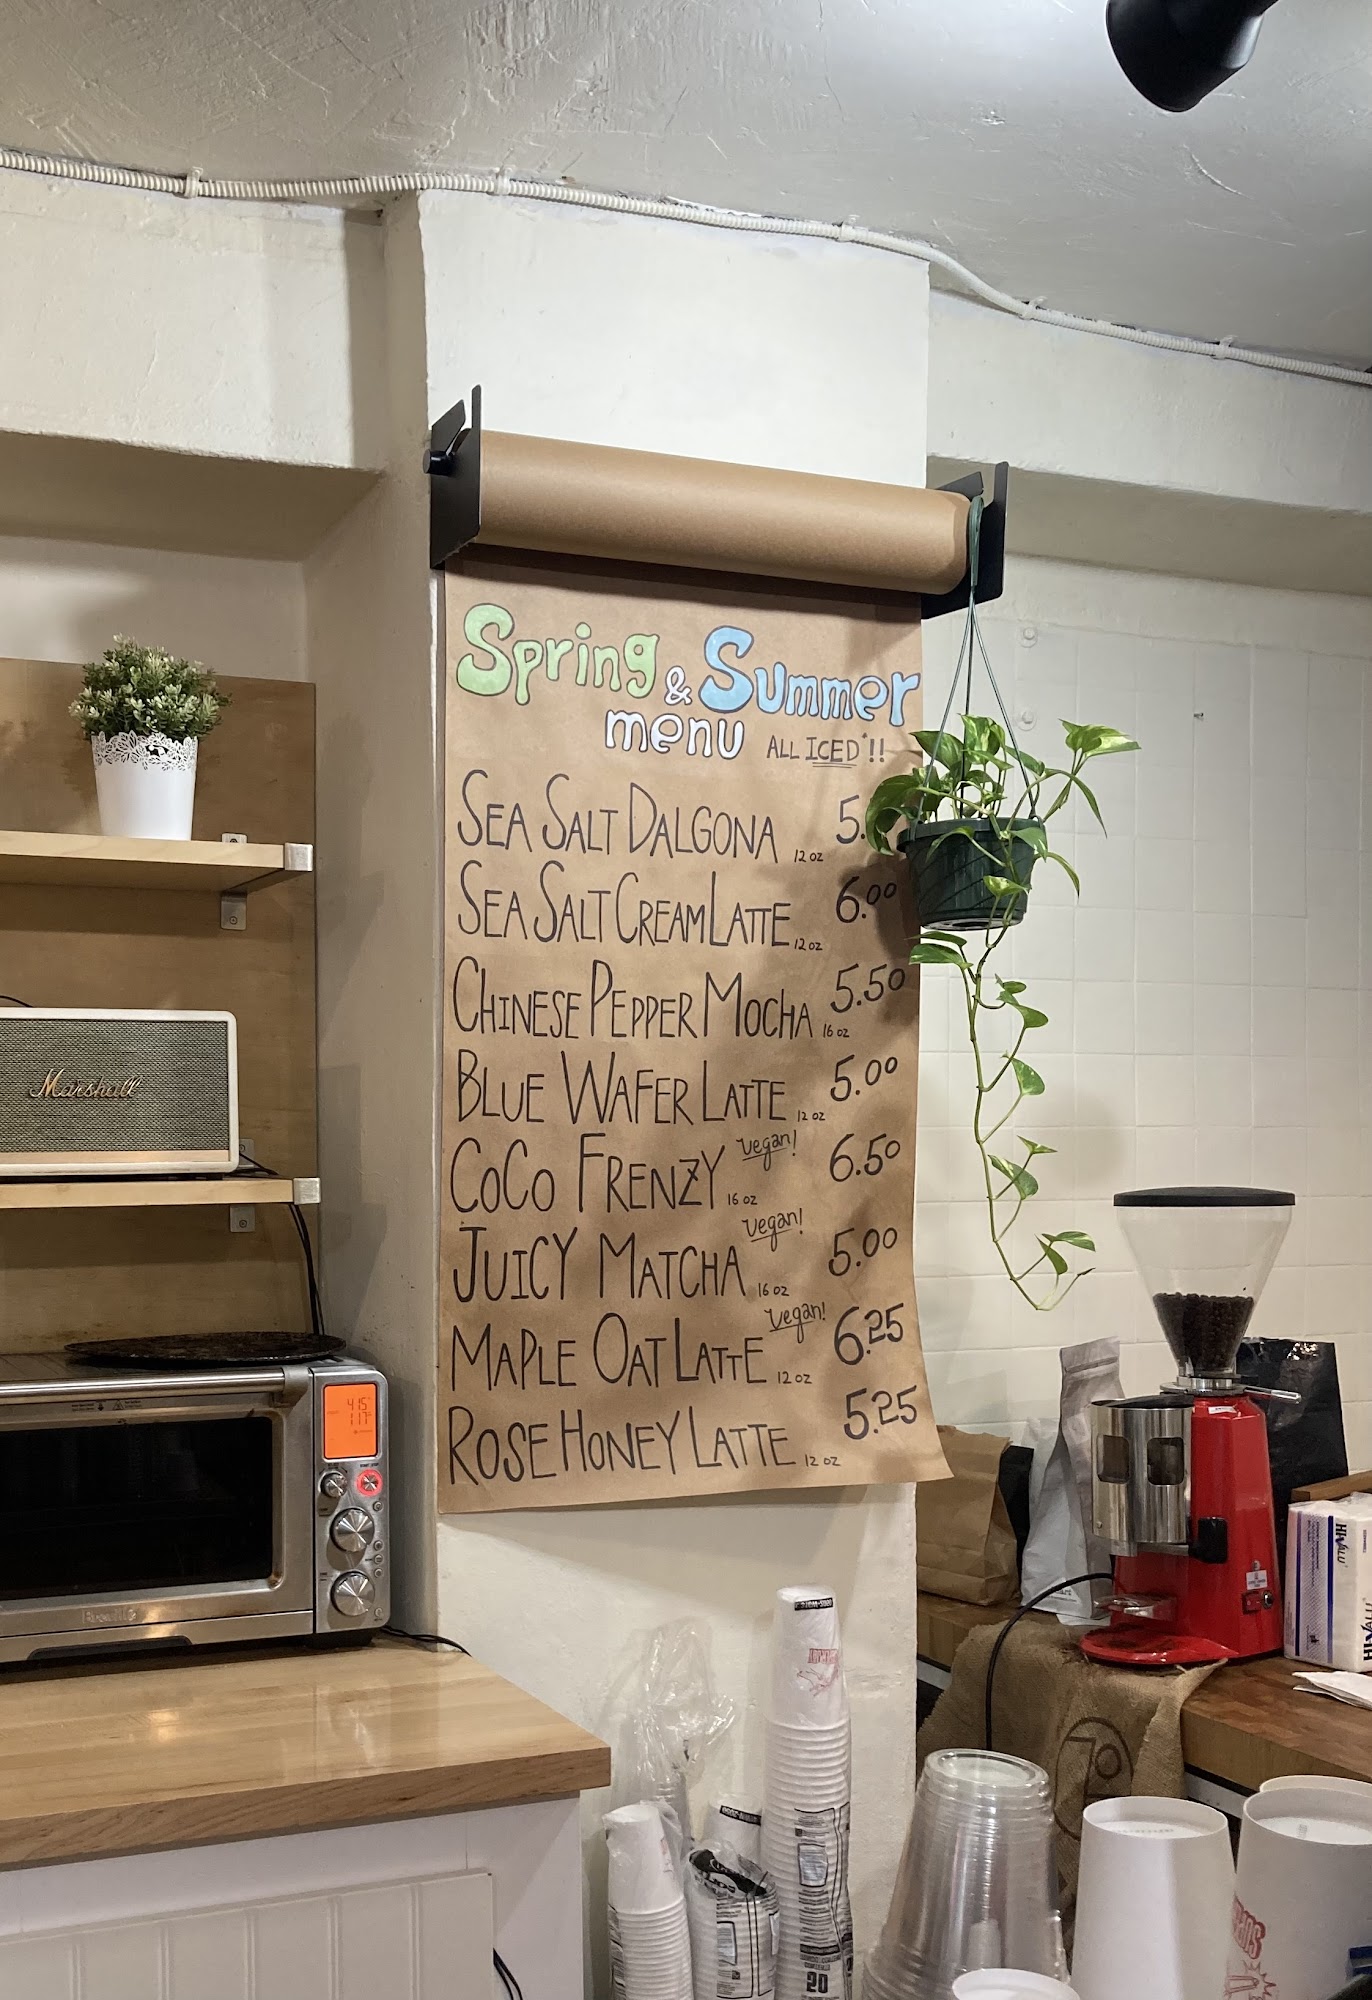 Spring & Summer
menu ALL ICED*!!
SEA SALT DALGONA 12 OZ 5.
SEA SALT CREAM LATTE 12 OZ 6.00
CHINESE PEPPER MOCHA 16 OZ 5.50
BLUE WAFER LATTE 12 OZ 5.00
COCO FRENZY 16 OZ vegan! 6.50
JUICY MATCHA 16 OZ vegan! 5.00
MAPLE OAT LATTE 12 OZ vegan! 6.25
ROSE HONEY LATTE 12 OZ 5.25
Marshall
415
117°
Breville
HI VALU
HI VALU
20